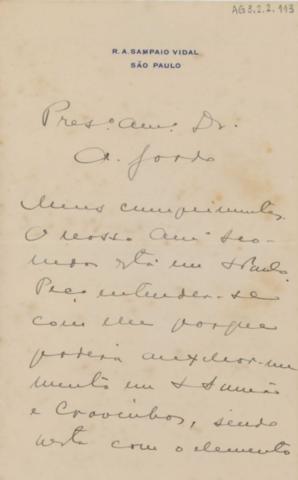 AG 3.2.2.113
R. A. SAMPAIO VIDAL
SÃO PAULO
Pres.º am.º Dr.
A. Gordo
Meus cumprimentos
O nosso am.º
está em S Paulo
Peço entender-se
com elle porque
poderá auxiliar-me
em S Simão
e Cravinhos, sendo
nesta com o elemento